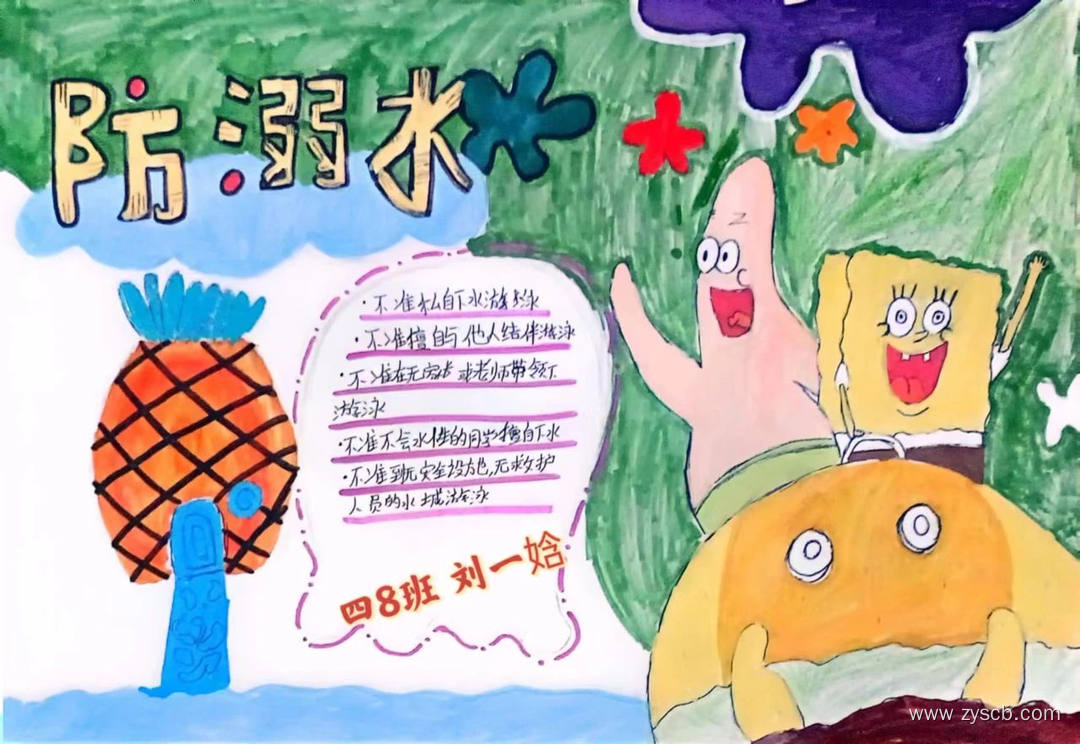 防溺水
·不准私自下水游泳
·不准擅自与他人结伴游泳
·不准在无家长或老师带领下
游泳
·不准不会水性的同学擅自下水
·不准到无安全设施,无救护
人员的水域游泳
四8班 刘一姶
www.zyscb.com